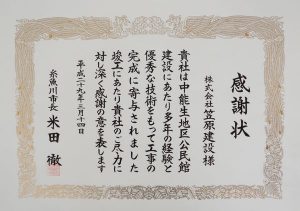 感謝状
株式会社笠原建設様
貴社は中能生地区公民館
建設にあたり多年の経験と
優秀な技術をもって工事の
完成に寄与されました
竣工にあたり貴社のご尽力に
対し深く感謝の意を表します
平成二十九年三月十四日
糸魚川市長 米田 徹